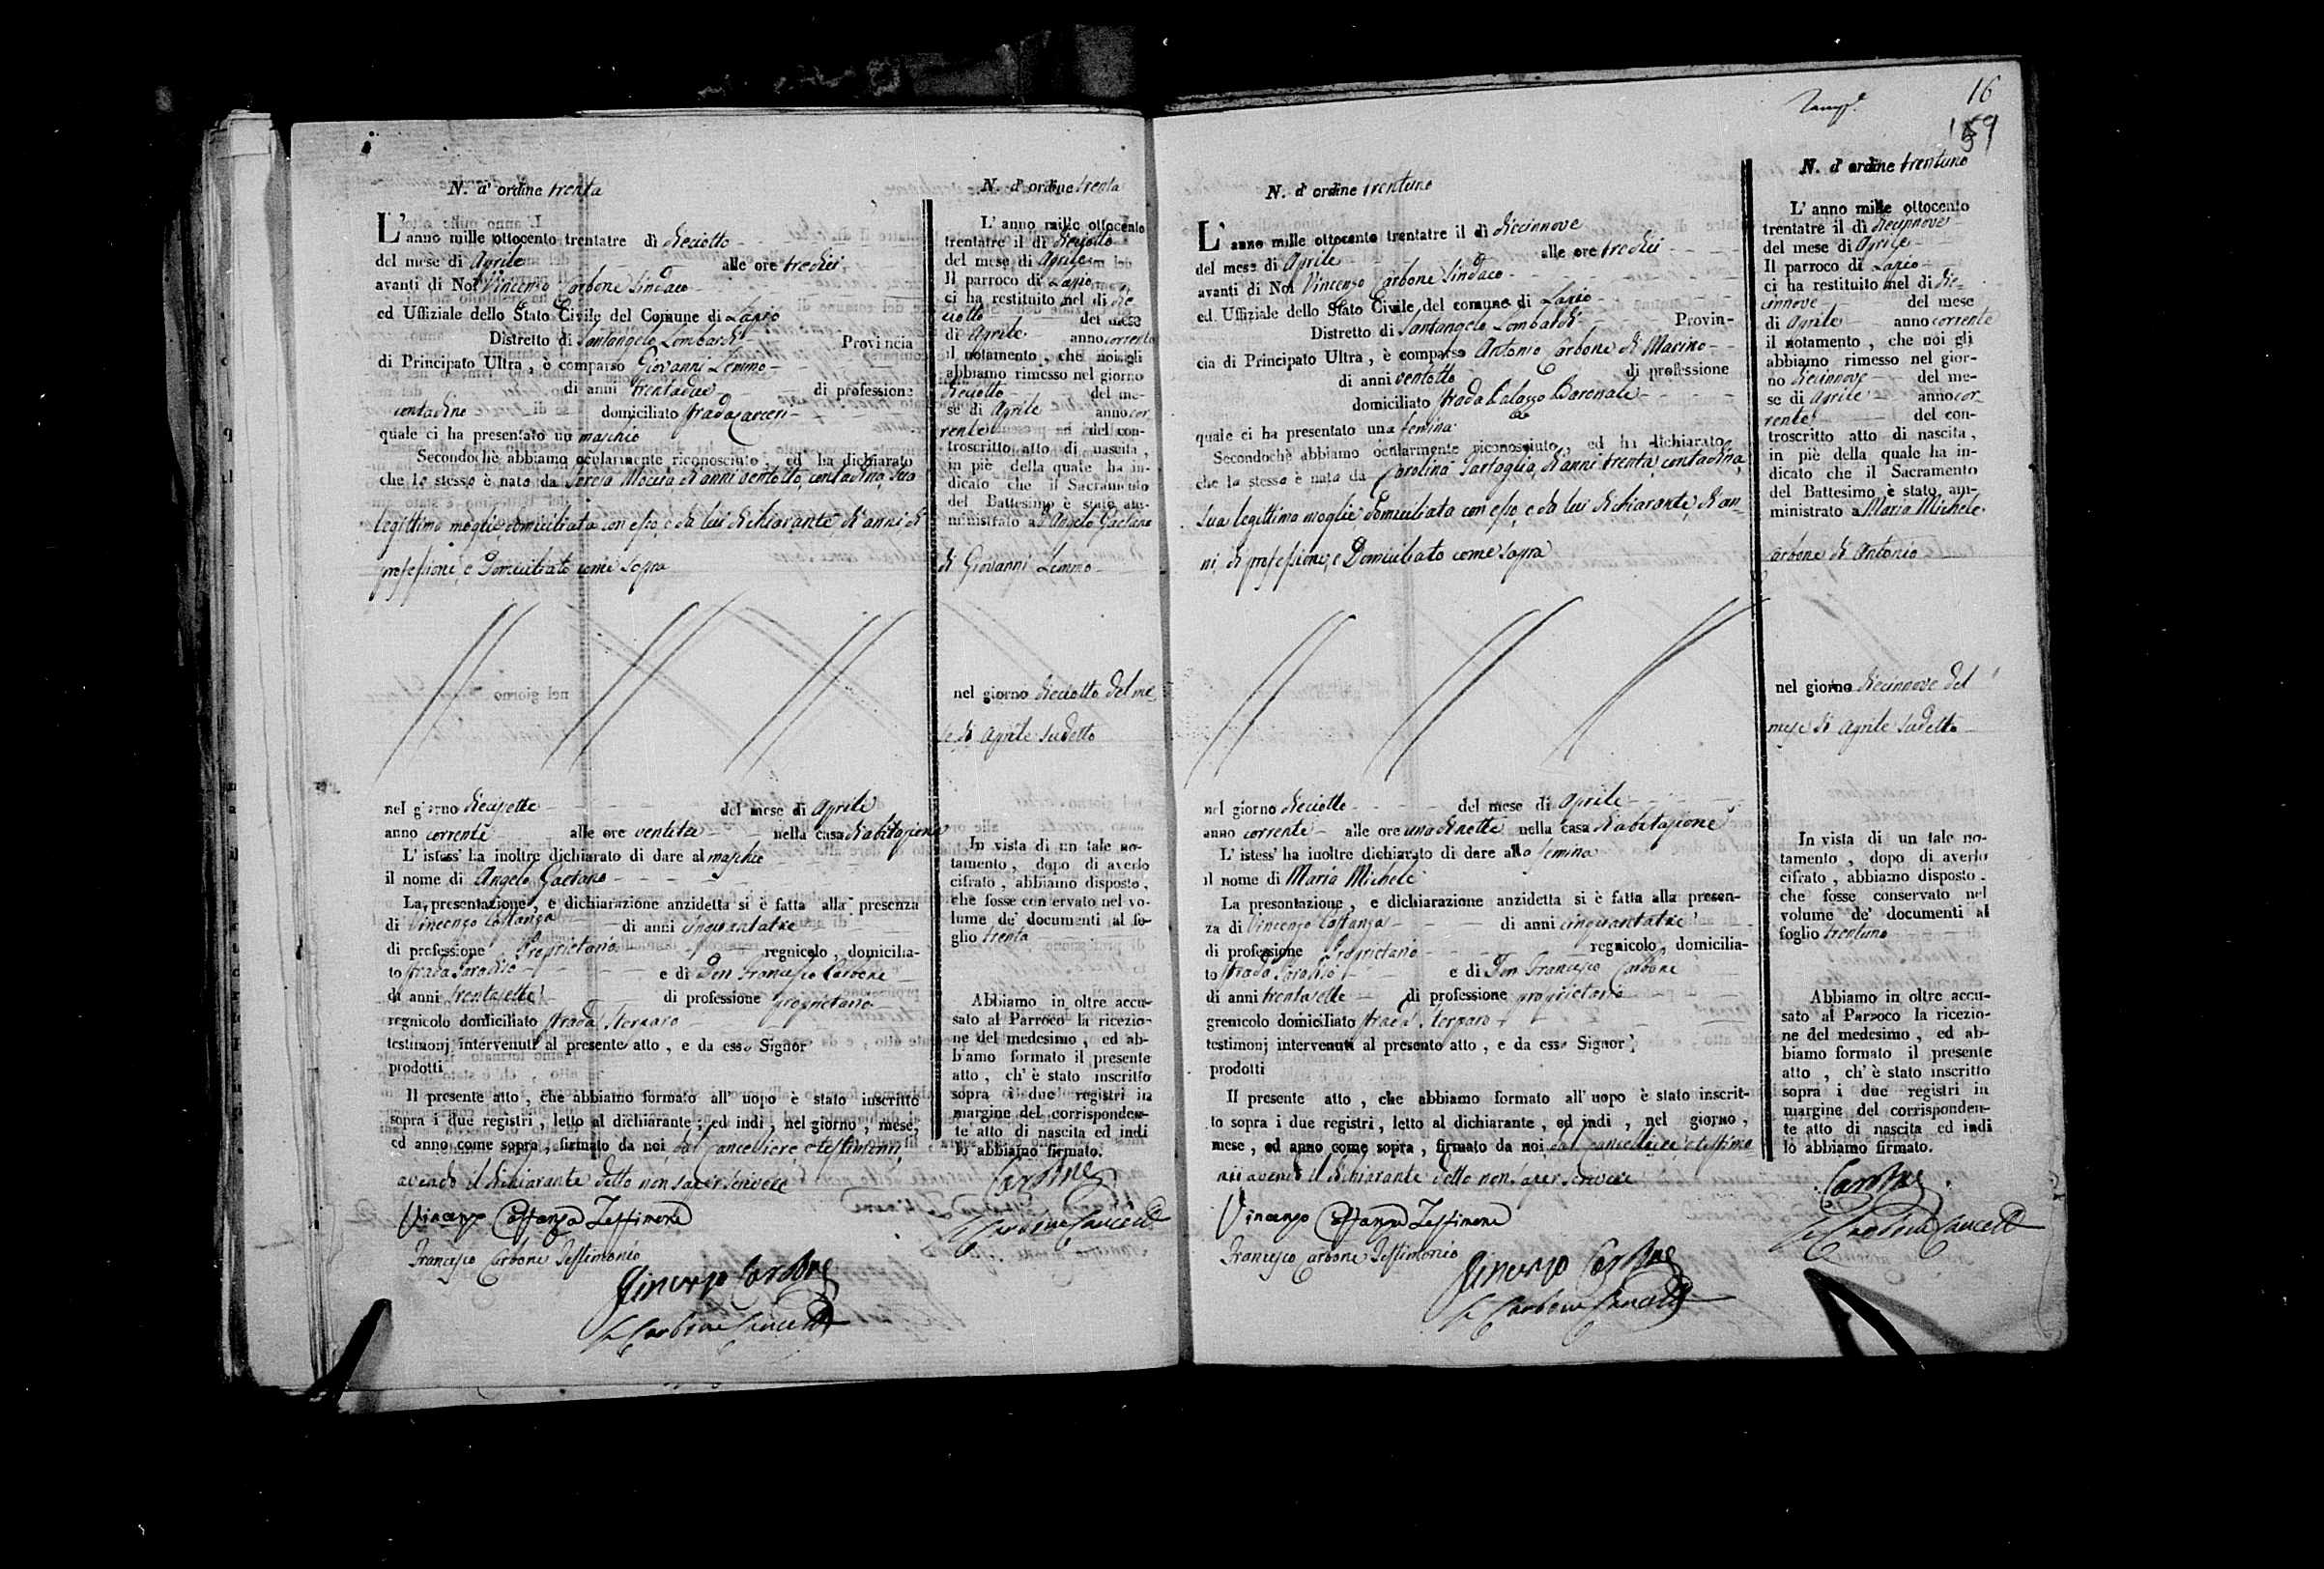 N. d' ordine trenta
L' anno mille ottocento trentatre dì dieciotto
del mese di Aprile alle ore tredici
avanti di Noi Vincenzo Carbone Sindaco
ed Uffiziale dello Stato Civile del Comune di Lapio
Distretto di Santangelo Lombardi Provincia
di Principato Ultra, è comparso Giovanni Lemmo
di anni trentadue di professione
contadino domiciliato strada carceri
quale ci ha presentato un maschio
Secondochè abbiamo ocularmente riconosciuto, ed ha dichiarato
che lo stesso è nato da Teresa di anni ventotto, contadina, sua
legittima moglie, domiciliata con esso, e da lui dichiarante, di anni, di
professione, e Domiciliato come sopra
nel giorno diecisette del mese di Aprile
anno corrente alle ore ventitre nella casa d'abitazione
L' istess' ha inoltre dichiarato di dare al maschio
il nome di Angelo Gaetano
La presentazione, e dichiarazione anzidetta si è fatta alla presenza
di Vincenzo Costanza di anni cinquantatre
di professione Proprietario regnicolo, domicilia-
to strada Paradiso e di Don Francesco Carbone
di anni trentasette di professione proprietario
regnicolo domiciliato strada Sterparo
testimonj intervenuti al presente atto, e da esso Signor
prodotti
Il presente atto, che abbiamo formato all' uopo è stato inscritto
sopra i due registri, letto al dichiarante; ed indi, nel giorno, mese,
ed anno come sopra, firmato da noi, dal Cancelliere, e testimoni,
avendo il dichiarante detto non saper scrivere
Vincenzo Costanza Testimone
Francesco Carbone Testimonio
Vincenzo Carbone
Carbone Cancell
N. d' ordine trenta
L' anno mille ottocento
trentatre il dì dieciotto
del mese di Aprile
Il parroco di Lapio
ci ha restituito nel dì die
ciotto del mese
di Aprile anno corrente
il notamento, che noi gli
abbiamo rimesso nel giorno
dieciotto del me-
se di Aprile anno cor
rente del con-
troscritto atto di nascita,
in piè della quale ha in-
dicato che il Sacramento
del Battesimo è stato am-
ministrato a Angelo Gaetano
di Giovanni Lemmo
nel giorno dieciotto del me
se di Aprile sudetto
In vista di un tale no-
tamento, dopo di averlo
cifrato, abbiamo disposto,
che fosse conservato nel vo-
lume de' documenti al fo-
glio trenta
Abbiamo in oltre accu-
sato al Parroco la ricezio-
ne del medesimo, ed ab-
biamo formato il presente
atto, ch' è stato inscritto
sopra i due registri in
margine del corrisponden-
te atto di nascita ed indi
lo abbiamo firmato.
Carbone
Carbone Cancell
16
159
N. d' ordine trentuno
L' anno mille ottocento trentatre il dì diecinnove
del mese di Aprile alle ore tredici
avanti di Noi Vincenzo Carbone Sindaco
ed Uffiziale dello Stato Civile del comune di Lapio
Distretto di Santangelo Lombardi Provin-
cia di Principato Ultra, è comparso Antonio Carbone di Marino
di anni ventotto di professione
domiciliato strada Palazzo Baronale
quale ci ha presentato una femina
Secondochè abbiamo ocularmente riconosciuto, ed ha dichiarato
che la stessa è nata da Carolina Tartaglia, di anni trenta, contadina,
sua legittima moglie domiciliata con esso, e da lui dichiarante, di an-
ni, di professione, e Domiciliato come sopra
nel giorno dieciotto del mese di Aprile
anno corrente alle ore una di notte nella casa d'abitazione
L' istess' ha inoltre dichiarato di dare alla femina
il nome di Maria Michele
La presentazione, e dichiarazione anzidetta si è fatta alla presen-
za di Vincenzo Costanza di anni cinquantatre
di professione Proprietario regnicolo, domicilia-
to strada Paradiso e di Don Francesco Carbone
di anni trentasette di professione proprietario
grenicolo domiciliato strada Sterparo
testimonj intervenuti al presente atto, e da esso Signor
prodotti
Il presente atto, che abbiamo formato all' uopo è stato inscrit-
to sopra i due registri, letto al dichiarante, ed indi, nel giorno,
mese, ed anno come sopra, firmato da noi, dal Cancelliere, e testimo
nii avendo il dichiarante detto non saper scrivere
Vincenzo Costanza Testimone
Francesco Carbone Testimonio
Vincenzo Carbone
Carbone Cancell
N. d' ordine trentuno
L' anno mille ottocento
trentatre il dì diecinnove
del mese di Aprile
Il parroco di Lapio
ci ha restituito nel dì die-
cinnove del mese
di Aprile anno corrente
il notamento, che noi gli
abbiamo rimesso nel gior-
no diecinnove del me-
se di Aprile anno cor-
rente del con-
troscritto atto di nascita,
in piè della quale ha in-
dicato che il Sacramento
del Battesimo è stato am-
ministrato a Maria Michele
Carbone di Antonio
nel giorno diecinnove del
mese di Aprile sudetto
In vista di un tale no-
tamento, dopo di averlo
cifrato, abbiamo disposto,
che fosse conservato nel
volume de' documenti al
foglio trentuno
Abbiamo in oltre accu-
sato al Parroco la ricezio-
ne del medesimo, ed ab-
biamo formato il presente
atto, ch' è stato inscritto
sopra i due registri in
margine del corrisponden-
te atto di nascita ed indi
lo abbiamo firmato.
Carbone
Carbone Cancell